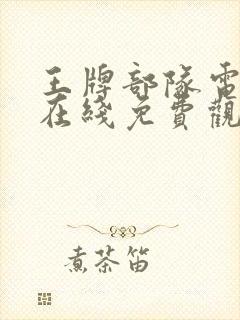 王牌部隊電
在綫免費觀
煮茶笛